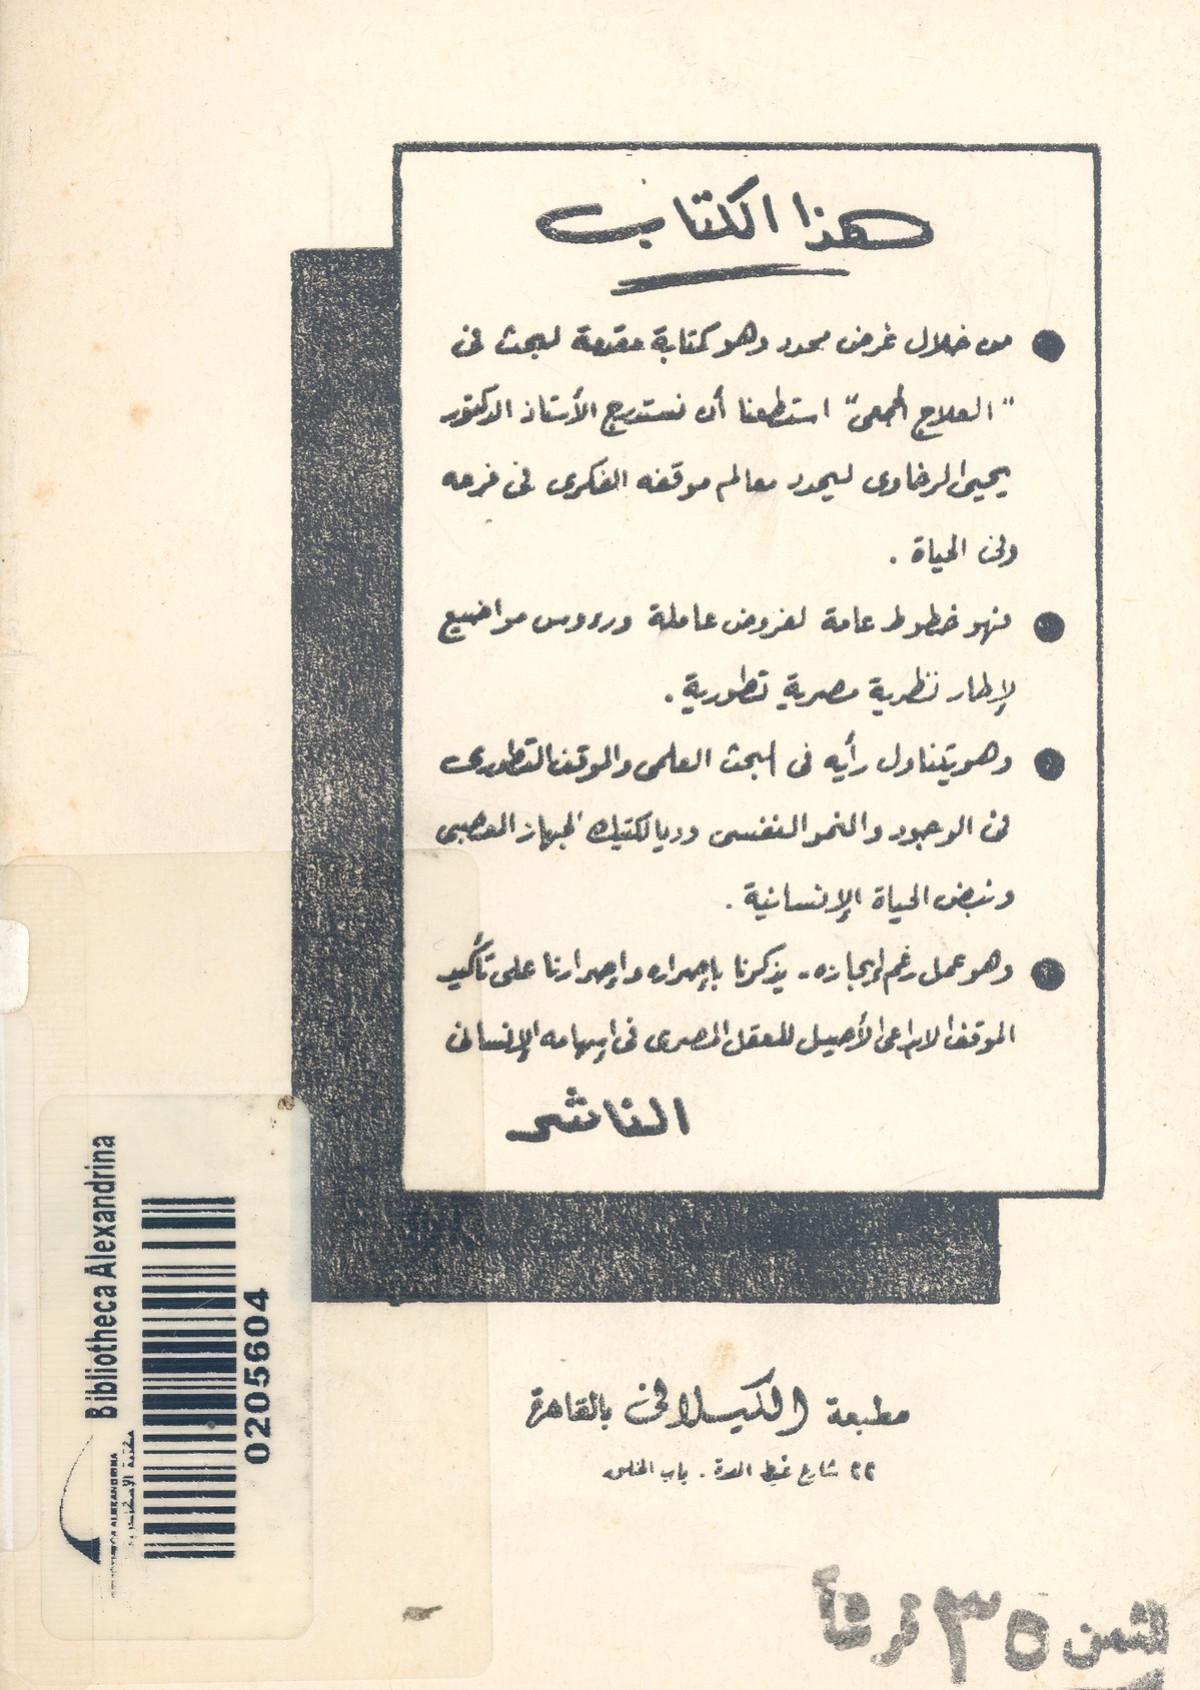 هذا الكتاب
● من خلال غرض محدد وهو كتابة مقدمة لبحث فى
"العلاج الجمعى" استطعنا أن نستدرج الأستاذ الدكتور
يحيى الرخاوى ليحدد معالم موقفه الفكرى فى فرعه
وفى الحياة .
● فهو خطوط عامة لفروض عاملة ورءوس مواضيع
لإطار نظرية مصرية تطورية .
● وهو يتناول رأيه فى البحث العلمى والموقف التطورى
فى الوجود والنمو النفسى وديالكتيك الجهاز العصبى
ونبض الحياة الإنسانية .
● وهو عمل رغم إيجازه - يذكرنا بإصراره وإصرارنا على تأكيد
الموقف الابداعى الأصيل للعقل المصرى فى إسهامه الإنسانى
الناشر
مطبعة الكيلانى بالقاهرة
٢٢ شارع غيط العدة . باب الخلق
الثمن ٣٥ قرشاً
Bibliotheca Alexandrina
0205604
BIBLIOTHECA ALEXANDRINA
مكتبة الإسكندرية